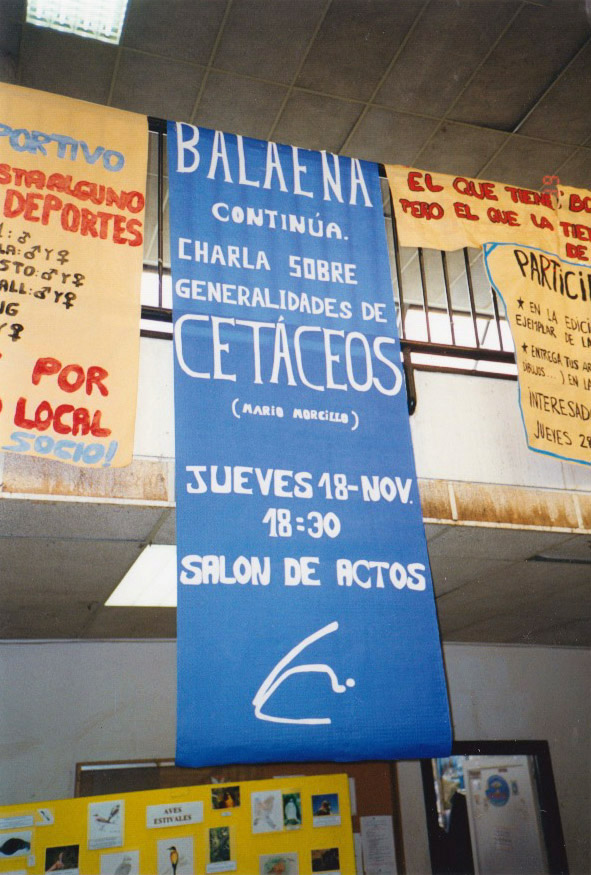 PORTIVO
ALGUNO
DEPORTES
♂ Y ♀
♂ Y ♀
STO: ♂ Y ♀
ALL: ♂ Y ♀
Y ♀
POR
LOCAL
SOCIO!
BALAENA
CONTINÚA.
CHARLA SOBRE
GENERALIDADES DE
CETÁCEOS
(MARIO MORCILLO)
JUEVES 18-NOV.
18:30
SALON DE ACTOS
EL QUE TIENE BO
PERO EL QUE LA TIE
DE
PARTICI
★ EN LA EDICI
EJEMPLAR DE LA
★ ENTREGA TUS AR
DIBUJOS...) EN LA
INTERESADO
JUEVES 28
AVES
ESTIVALES